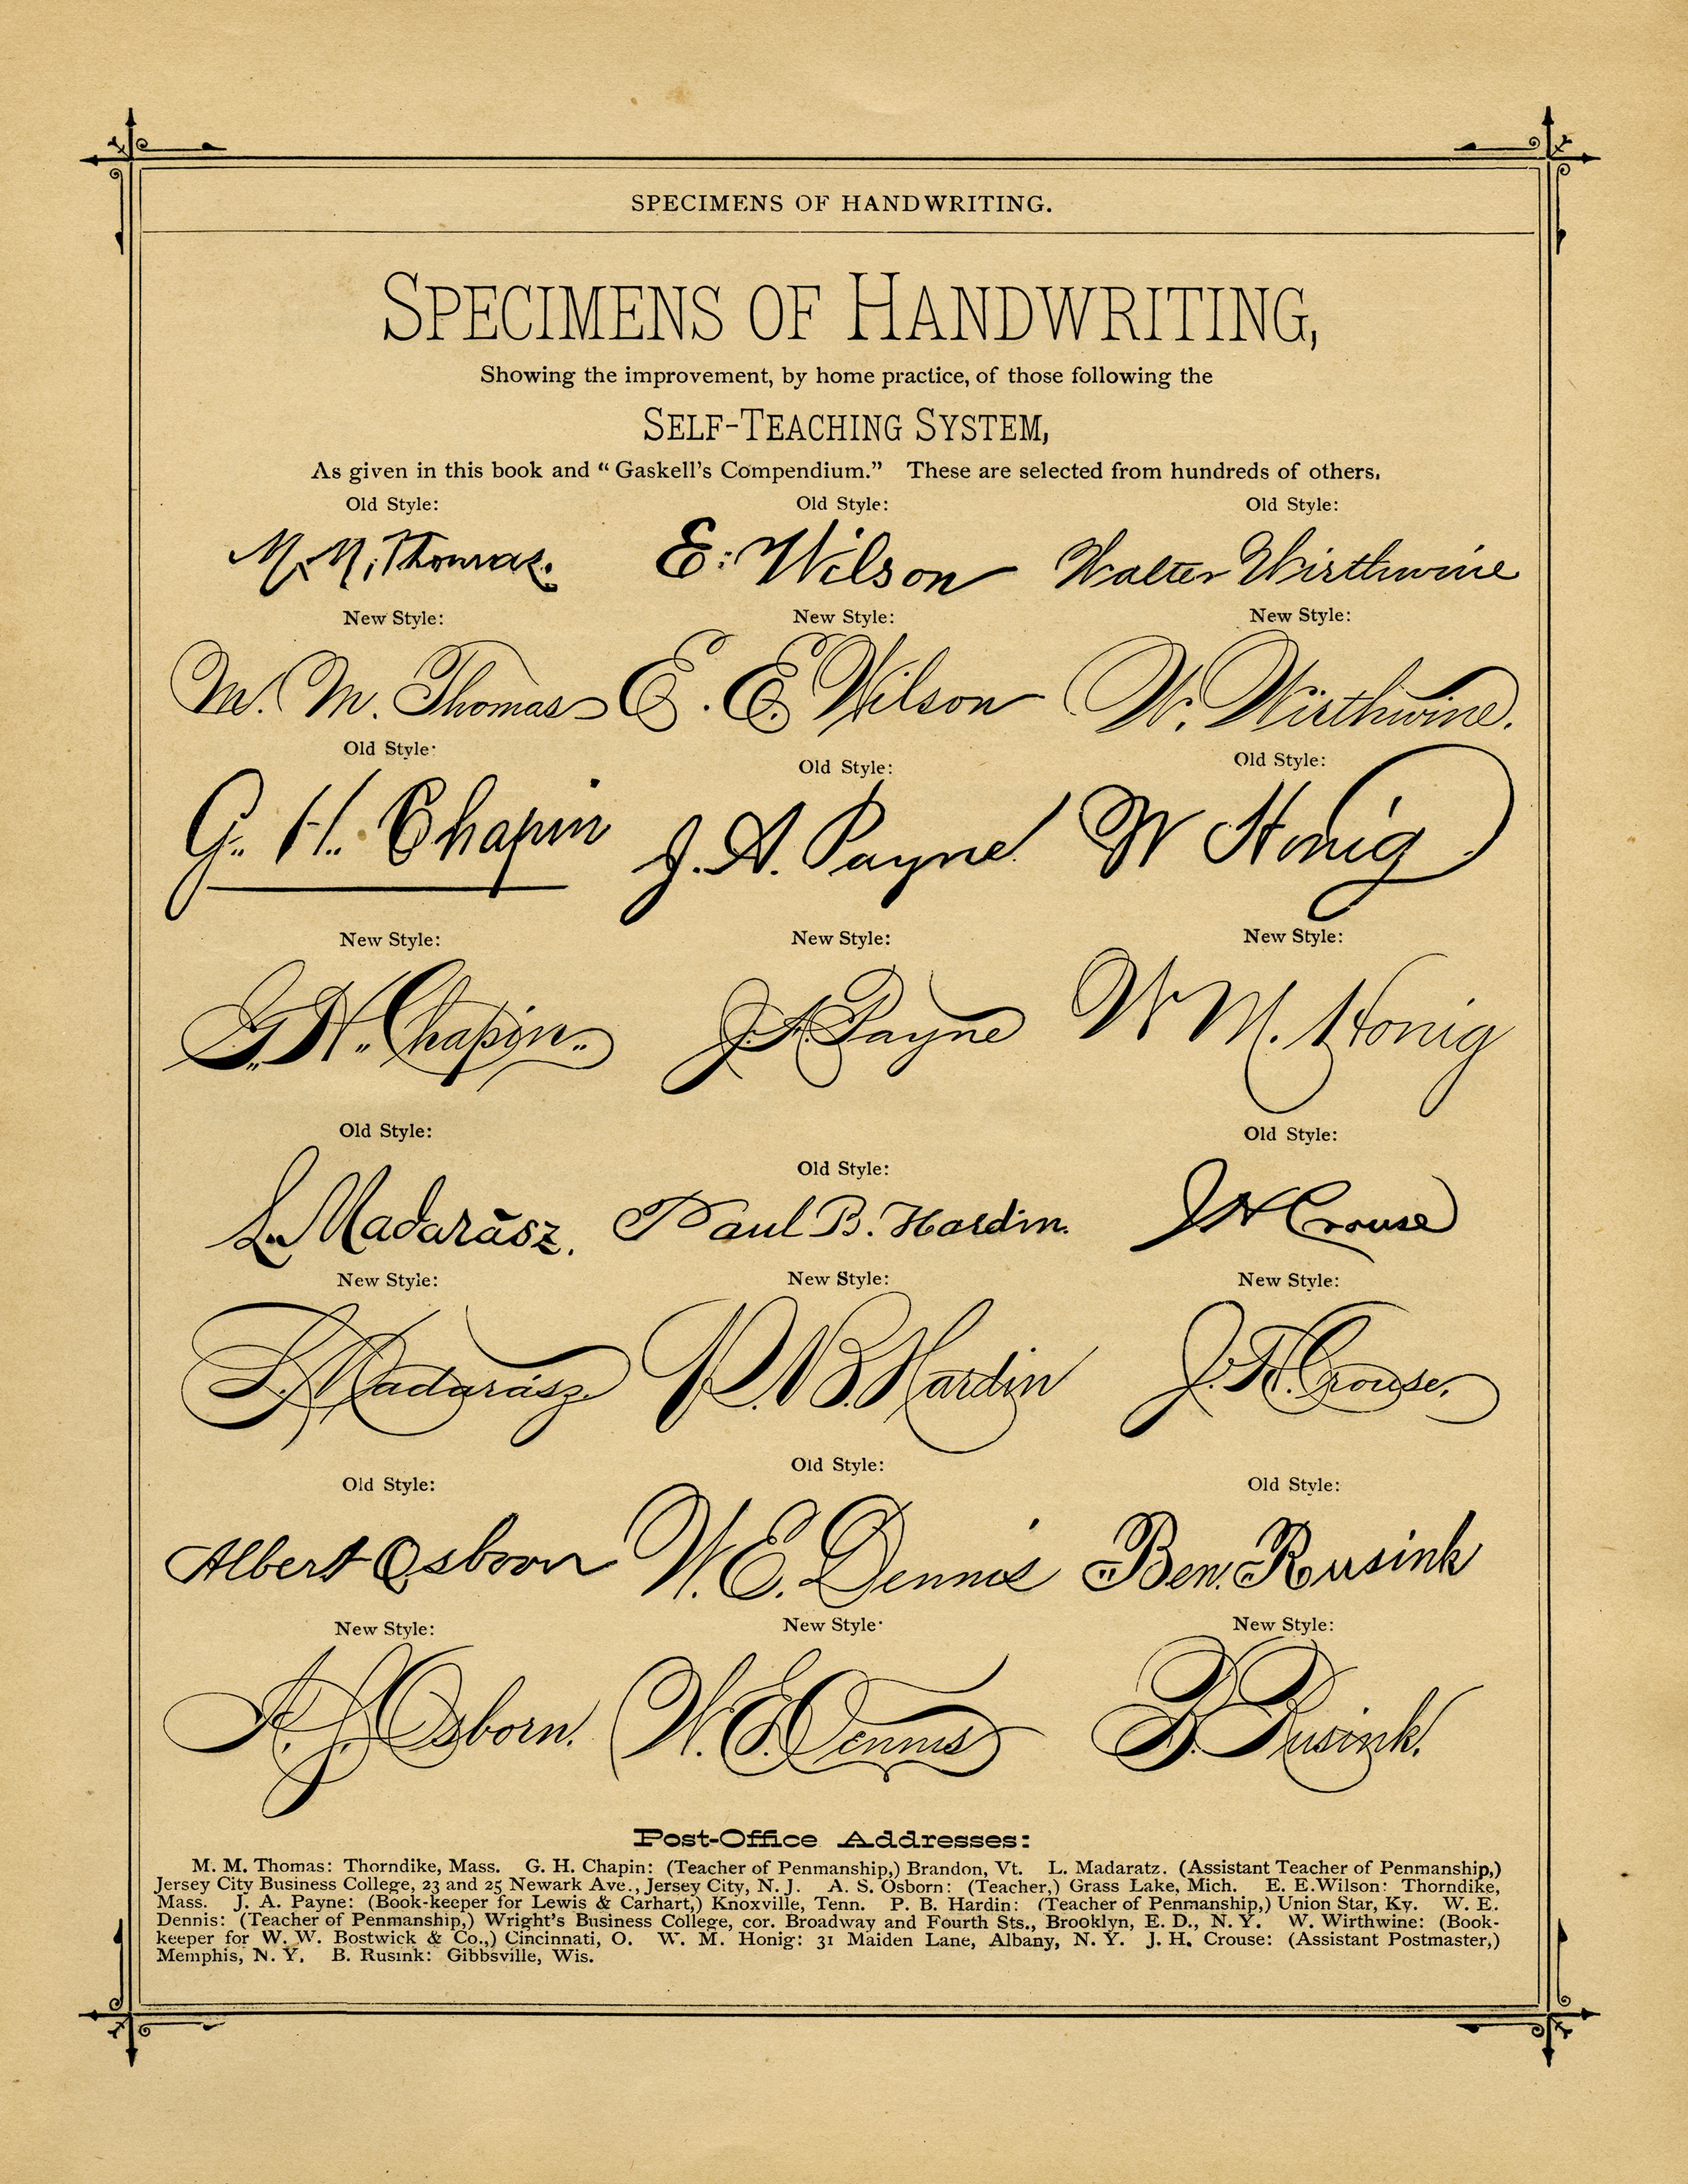 SPECIMENS OF HANDWRITING.
SPECIMENS OF HANDWRITING,
Showing the improvement, by home practice, of those following the
SELF-TEACHING SYSTEM,
As given in this book and “Gaskell's Compendium.” These are selected from hundreds of others.
Old Style: Old Style: Old Style:
M. M. Thomas. E. Wilson Walter Wirthwine
New Style: New Style: New Style:
M. M. Thomas E. E. Wilson W. Wirthwine.
Old Style: Old Style: Old Style:
G. H. Chapin J. A. Payne W Honig
New Style: New Style: New Style:
G. H. Chapin. J. A. Payne W M. Honig
Old Style: Old Style: Old Style:
L. Madarász. Paul B. Hardin. J H Crouse
New Style: New Style: New Style:
L. Madarász. P. B. Hardin J. H. Crouse.
Old Style: Old Style: Old Style:
Albert Osborn W. E. Dennis Ben. Rusink
New Style: New Style: New Style:
A. S. Osborn. W. E. Dennis B. Rusink.
Post-Office Addresses:
M. M. Thomas: Thorndike, Mass. G. H. Chapin: (Teacher of Penmanship,) Brandon, Vt. L. Madaratz. (Assistant Teacher of Penmanship,)
Jersey City Business College, 23 and 25 Newark Ave., Jersey City, N. J. A. S. Osborn: (Teacher,) Grass Lake, Mich. E. E. Wilson: Thorndike,
Mass. J. A. Payne: (Book-keeper for Lewis & Carhart,) Knoxville, Tenn. P. B. Hardin: (Teacher of Penmanship,) Union Star, Ky. W. E.
Dennis: (Teacher of Penmanship,) Wright's Business College, cor. Broadway and Fourth Sts., Brooklyn, E. D., N. Y. W. Wirthwine: (Book-
keeper for W. W. Bostwick & Co.,) Cincinnati, O. W. M. Honig: 31 Maiden Lane, Albany, N. Y. J. H. Crouse: (Assistant Postmaster,)
Memphis, N. Y. B. Rusink: Gibbsville, Wis.